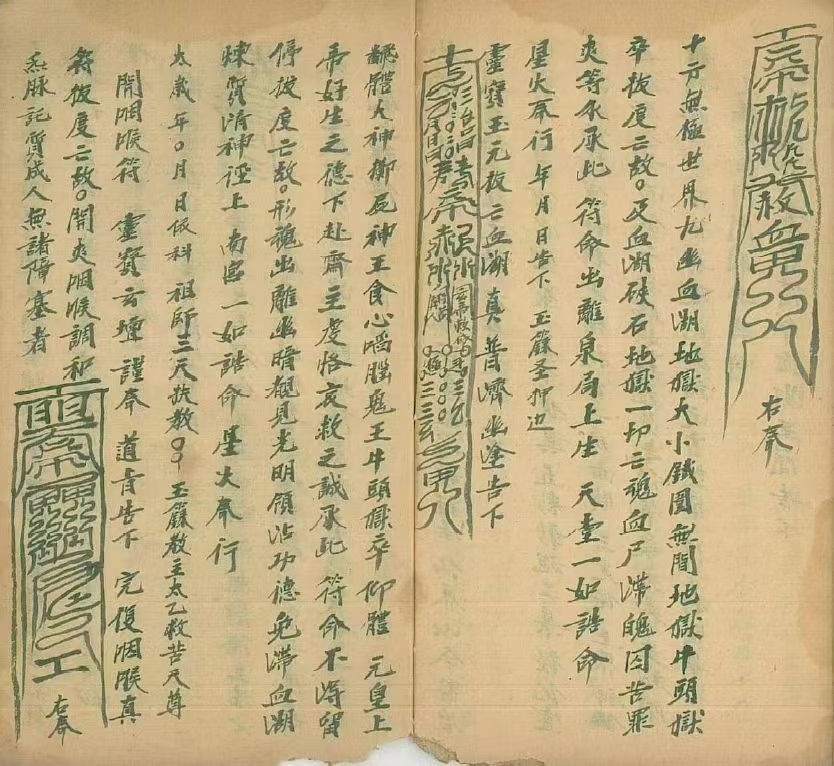 右奉
十方無極世界九幽血湖地獄大小鐵圍無間地獄牛頭獄
卒拔度亡故○及血湖硤石地獄一切亡魂血尸滯魄囚苦罪
爽等承此 符命出離泉局上生 天堂一如誥命
星火奉行 年月日告下 玉籙
靈寶玉元拔亡血湖真 普濟幽塗告下
體大神擲尸神王食心啗腦鬼王牛頭獄卒仰體 元皇上
帝好生之德下赴齋主虔恪哀救之誠承此 符命不得留
停拔度亡故○形魂出離幽暗觀見光明領沾功德免滯血湖
煉質清神逕上 南宮一如誥命星火奉行
太歲年○月 日依科 祖師三天扶教○○ 玉籙教主太乙救苦天尊
開咽喉符 靈寶云壇 謹奉 道旨告下 完復咽喉真
符拔度亡故○開爽咽喉調和
脉記質成人無諸障塞者
右奉